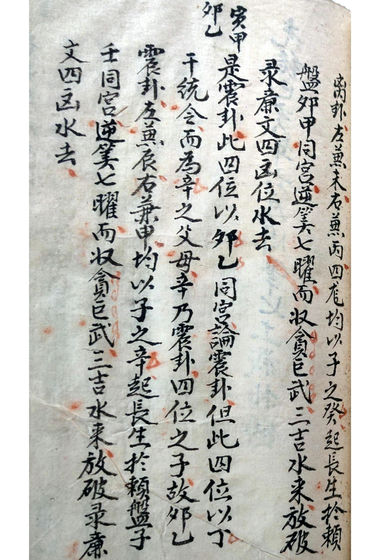 離卦左兼未右兼丙四龙均以子之癸起長生於賴
盤卯甲同宮逆筭七曜而収貪巨武三吉水来放破
录廉文四凶位水去
寅甲
卯乙
是震卦此四位以卯乙同宮論震卦但此四位以丁
干統会而為辛之父母辛乃震卦四位之子故卯乙
震卦左兼辰右兼甲均以子之辛起長生於賴盤子
壬同宮逆筭七曜而収貪巨武三吉水来放破录廉
文四凶水去